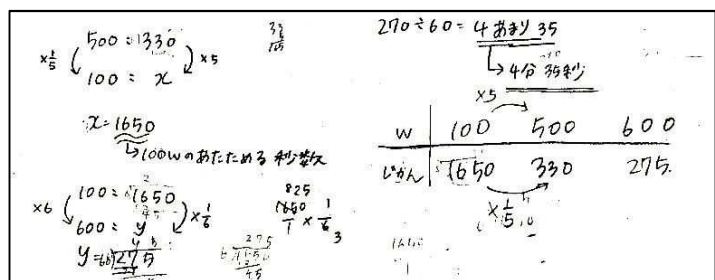 500 = 1330
×1/5 ×5
100 = x
x = 1650
→100wのあたためる秒数
100 = 1650
×6 ×1/6
600 = y
y = 275
825
1650/1 × 1/6
3
270÷60 = 4あまり35
→4分35秒
×5
W 100 500 600
じかん 1650 330 275
×1/5